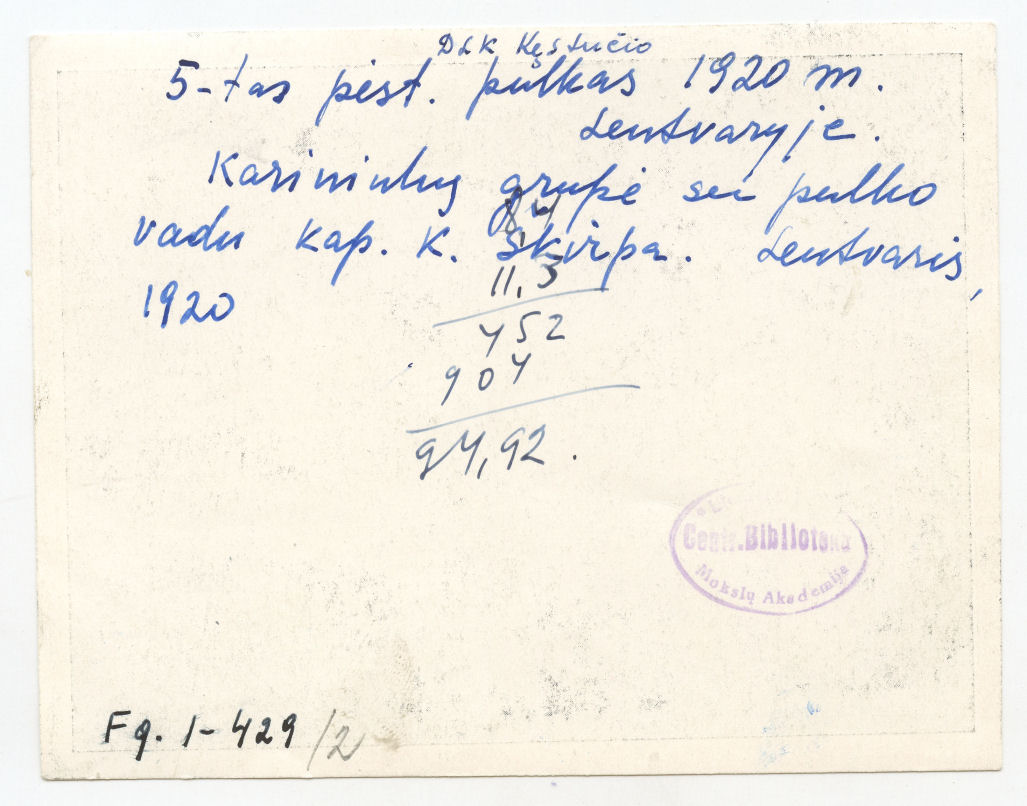 DLK Kęstučio
5-tas pėst. pulkas 1920 m.
Lentvaryje.
Karininkų grupė su pulko
vadu kap. K. Škirpa. Lentvaris,
1920
8,4
11,3
452
904
94,92.
Centr. Biblioteka
Mokslų Akademija
Fg. 1-429/2